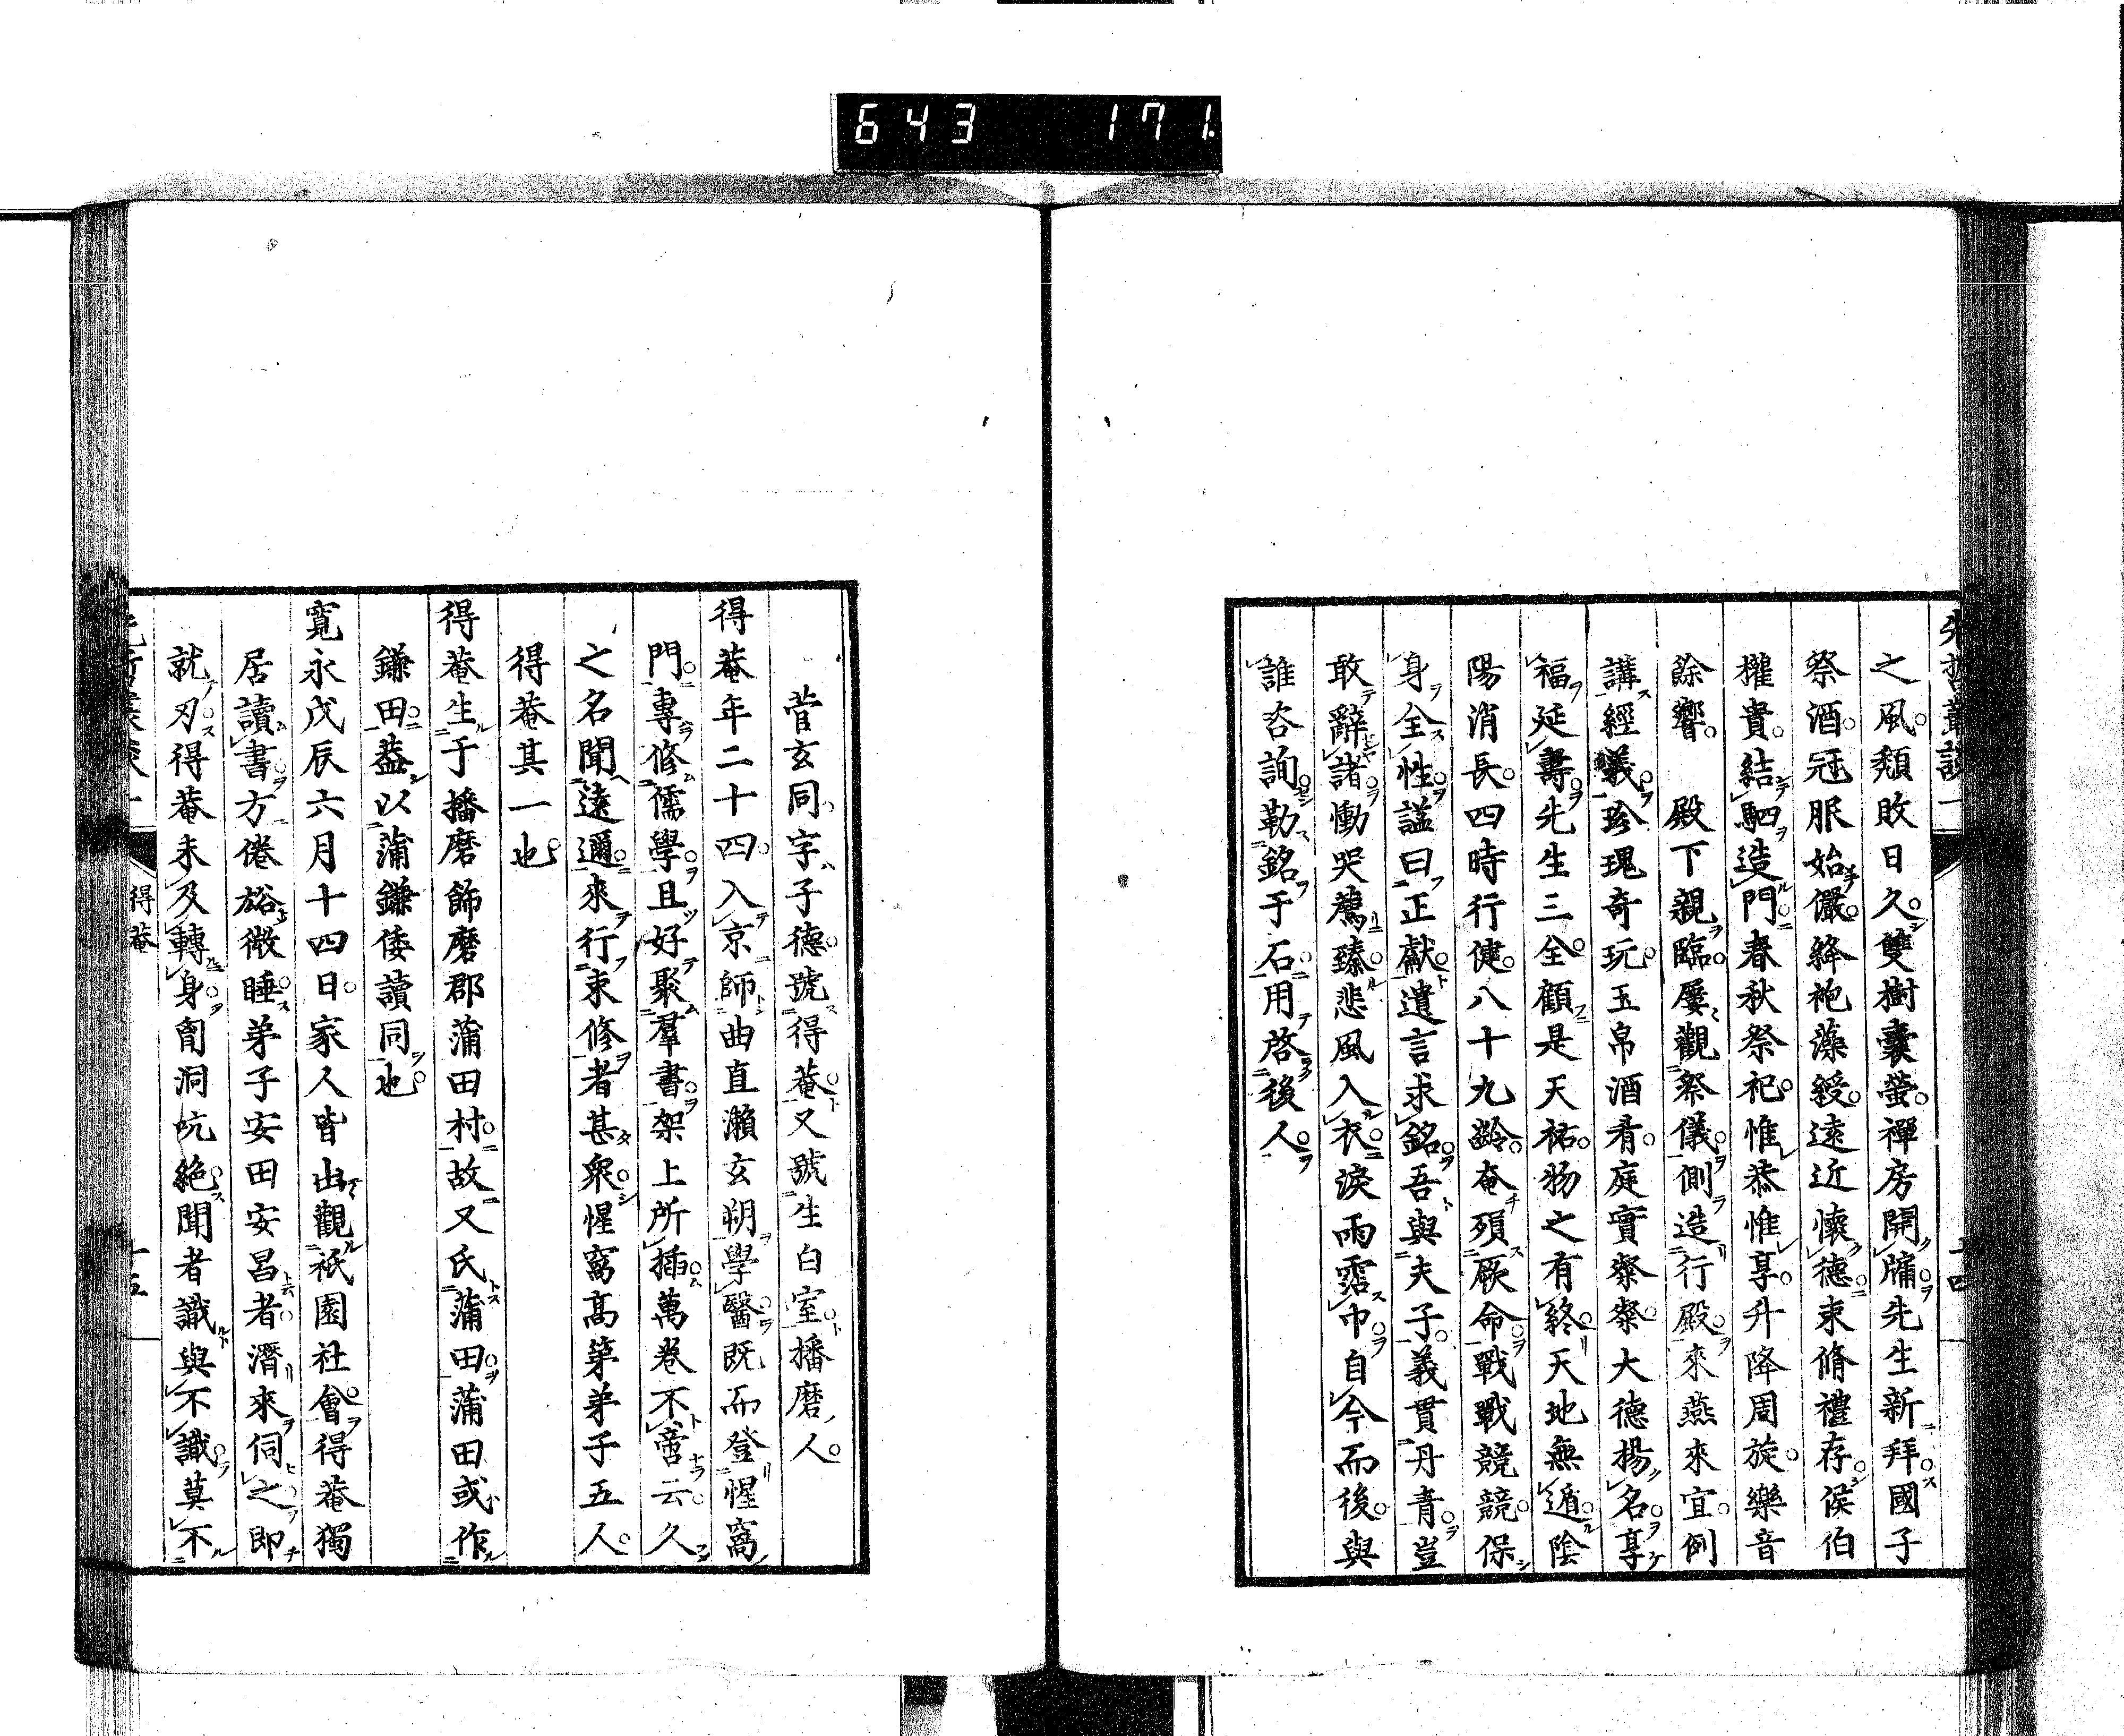 643 171
先哲叢談一
之風頽敗日久雙樹囊螢禪房開牖先生新拜國子
祭酒冠服始儼絳袍藻綬遠近懷德束脩禮存侯伯
權貴結駟造門春秋祭祀惟恭惟享升降周旋樂音
餘響 殿下親臨屢觀祭儀側造行殿來燕來宜例
講經義珍瑰奇玩玉帛酒肴庭實粲粲大德揚名享
福延壽先生三全顧是天祐物之有終天地無遁陰
陽消長四時行健八十九齡奄殞厥命戰戰競競保
身全性謚曰正獻遺言求銘吾與夫子義貫丹青豈
敢辭諸慟哭薦臻悲風入衣淚雨霑巾自今而後與
誰咨詢勒銘于石用啓後人
菅玄同字子德號得菴又號生白室播磨人
得菴年二十四入京師曲直瀨玄朔學醫既而登惺窩
門專修儒學且好聚羣書架上所插萬卷不啻云久
之名聞遠邇來行束修者甚衆惺窩高第弟子五人
得菴其一也
得菴生于播磨飾磨郡蒲田村故又氏蒲田蒲田或作
鎌田蓋以蒲鎌倭讀同也
寬永戊辰六月十四日家人皆出觀祇園社會得菴獨
居讀書方倦終微睡弟子安田安昌者潛來伺之即
就刃得菴未及轉身胷洞吭絶聞者識與不識莫不
得菴